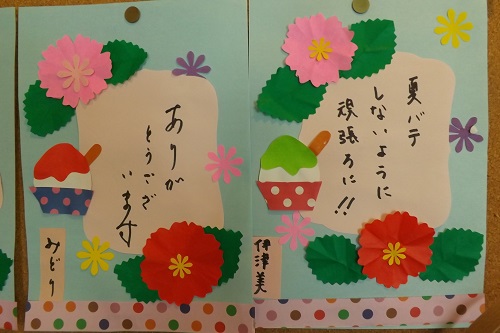 ありが
とうござ
います
みどり
夏バテ
しないように
頑張ろに!!
伊津美